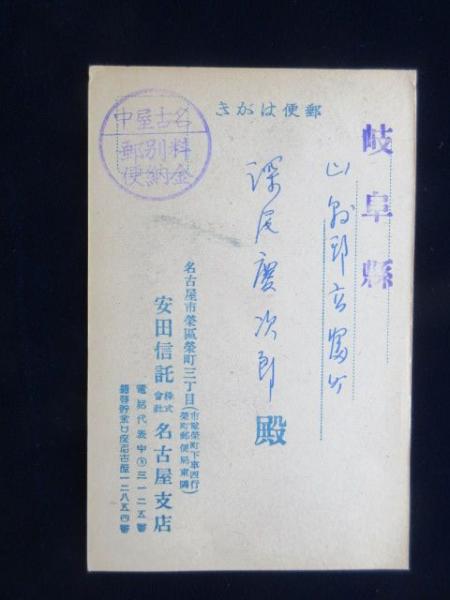 郵便はがき
名古屋中
料金
別納
郵便
岐阜縣
山県郡高富町
深尾慶次郎殿
名古屋市榮區榮町三丁目(市電榮町下車西行 榮町郵便局東隣)
安田信託株式會社名古屋支店
電話代表中③三一二五番
振替貯金口座名古屋一二八五四番